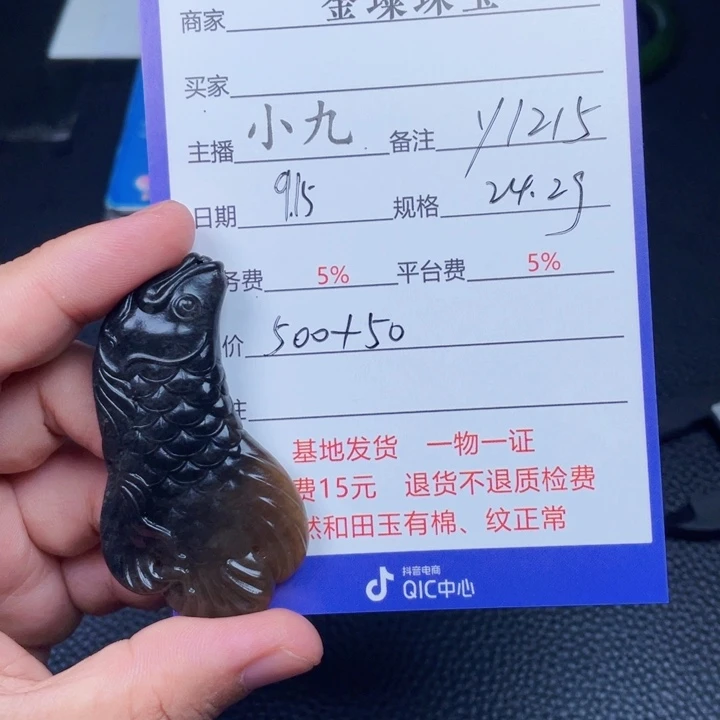 商家 金璨珠宝
买家
主播 小九 备注 Y1215
日期 9.15 规格 24.2g
务费 5% 平台费 5%
价 500+50
注
基地发货 一物一证
费15元 退货不退质检费
然和田玉有棉、纹正常
抖音电商
QIC中心